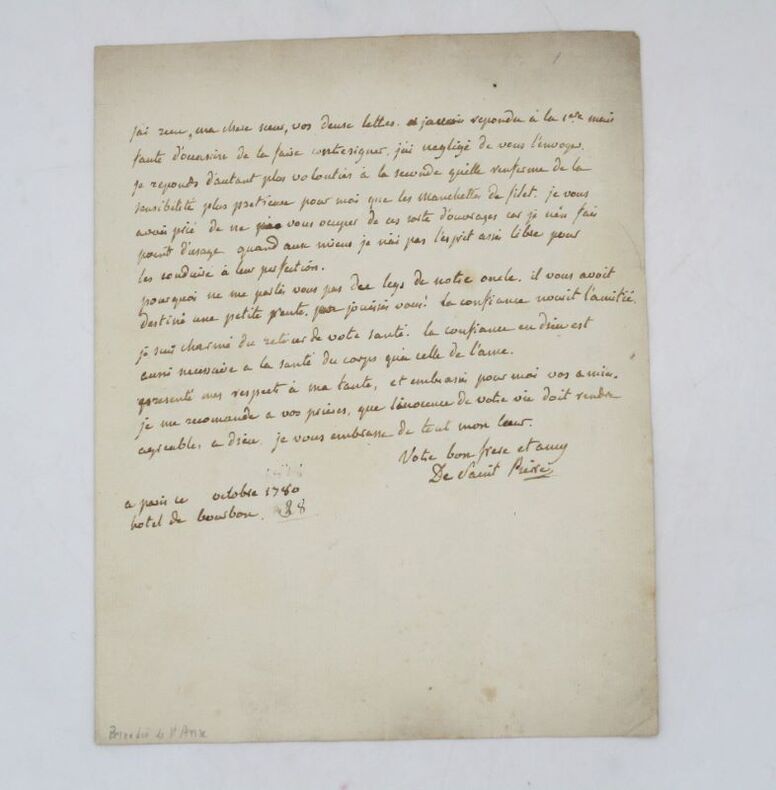 j'ai recu, ma chere sœur, vos deux lettres. j'aurois repondu à la 1ere mais
faute d'occasion de la faire contresigner, j'ai negligé de vous l'envoyer.
je reponds d'autant plus volontiers à la seconde qu'elle renferme de la
sensibilité plus pretieuse pour moi que les manchettes de filet. je vous
avois prié de ne vous occuper de ces sorte d'ouvrages car je n'en fais
point d'usage. quand aux miens je n'ai pas l'esprit assé libre pour
les conduire à leur perfection.
pourquoi ne me parlés vous pas des legs de notre oncle. il vous avoit
destiné une petite rente. jouissés vous! la confiance nourit l'amitié.
je suis charmé du retour de votre santé. la confiance en dieu est
aussi necessaire a la santé du corps qu'a celle de l'ame.
presenté mes respect à ma tante, et embrassés pour moi vos amies.
je me recomande a vos prieres, que l'inocence de votre vie doit rendre
agreables. a dieu. je vous embrasse de tout mon cœur.
Votre bon frere et amy
De Saint Pierre
a paris ce octobre 1780
hotel de bourbon. 28